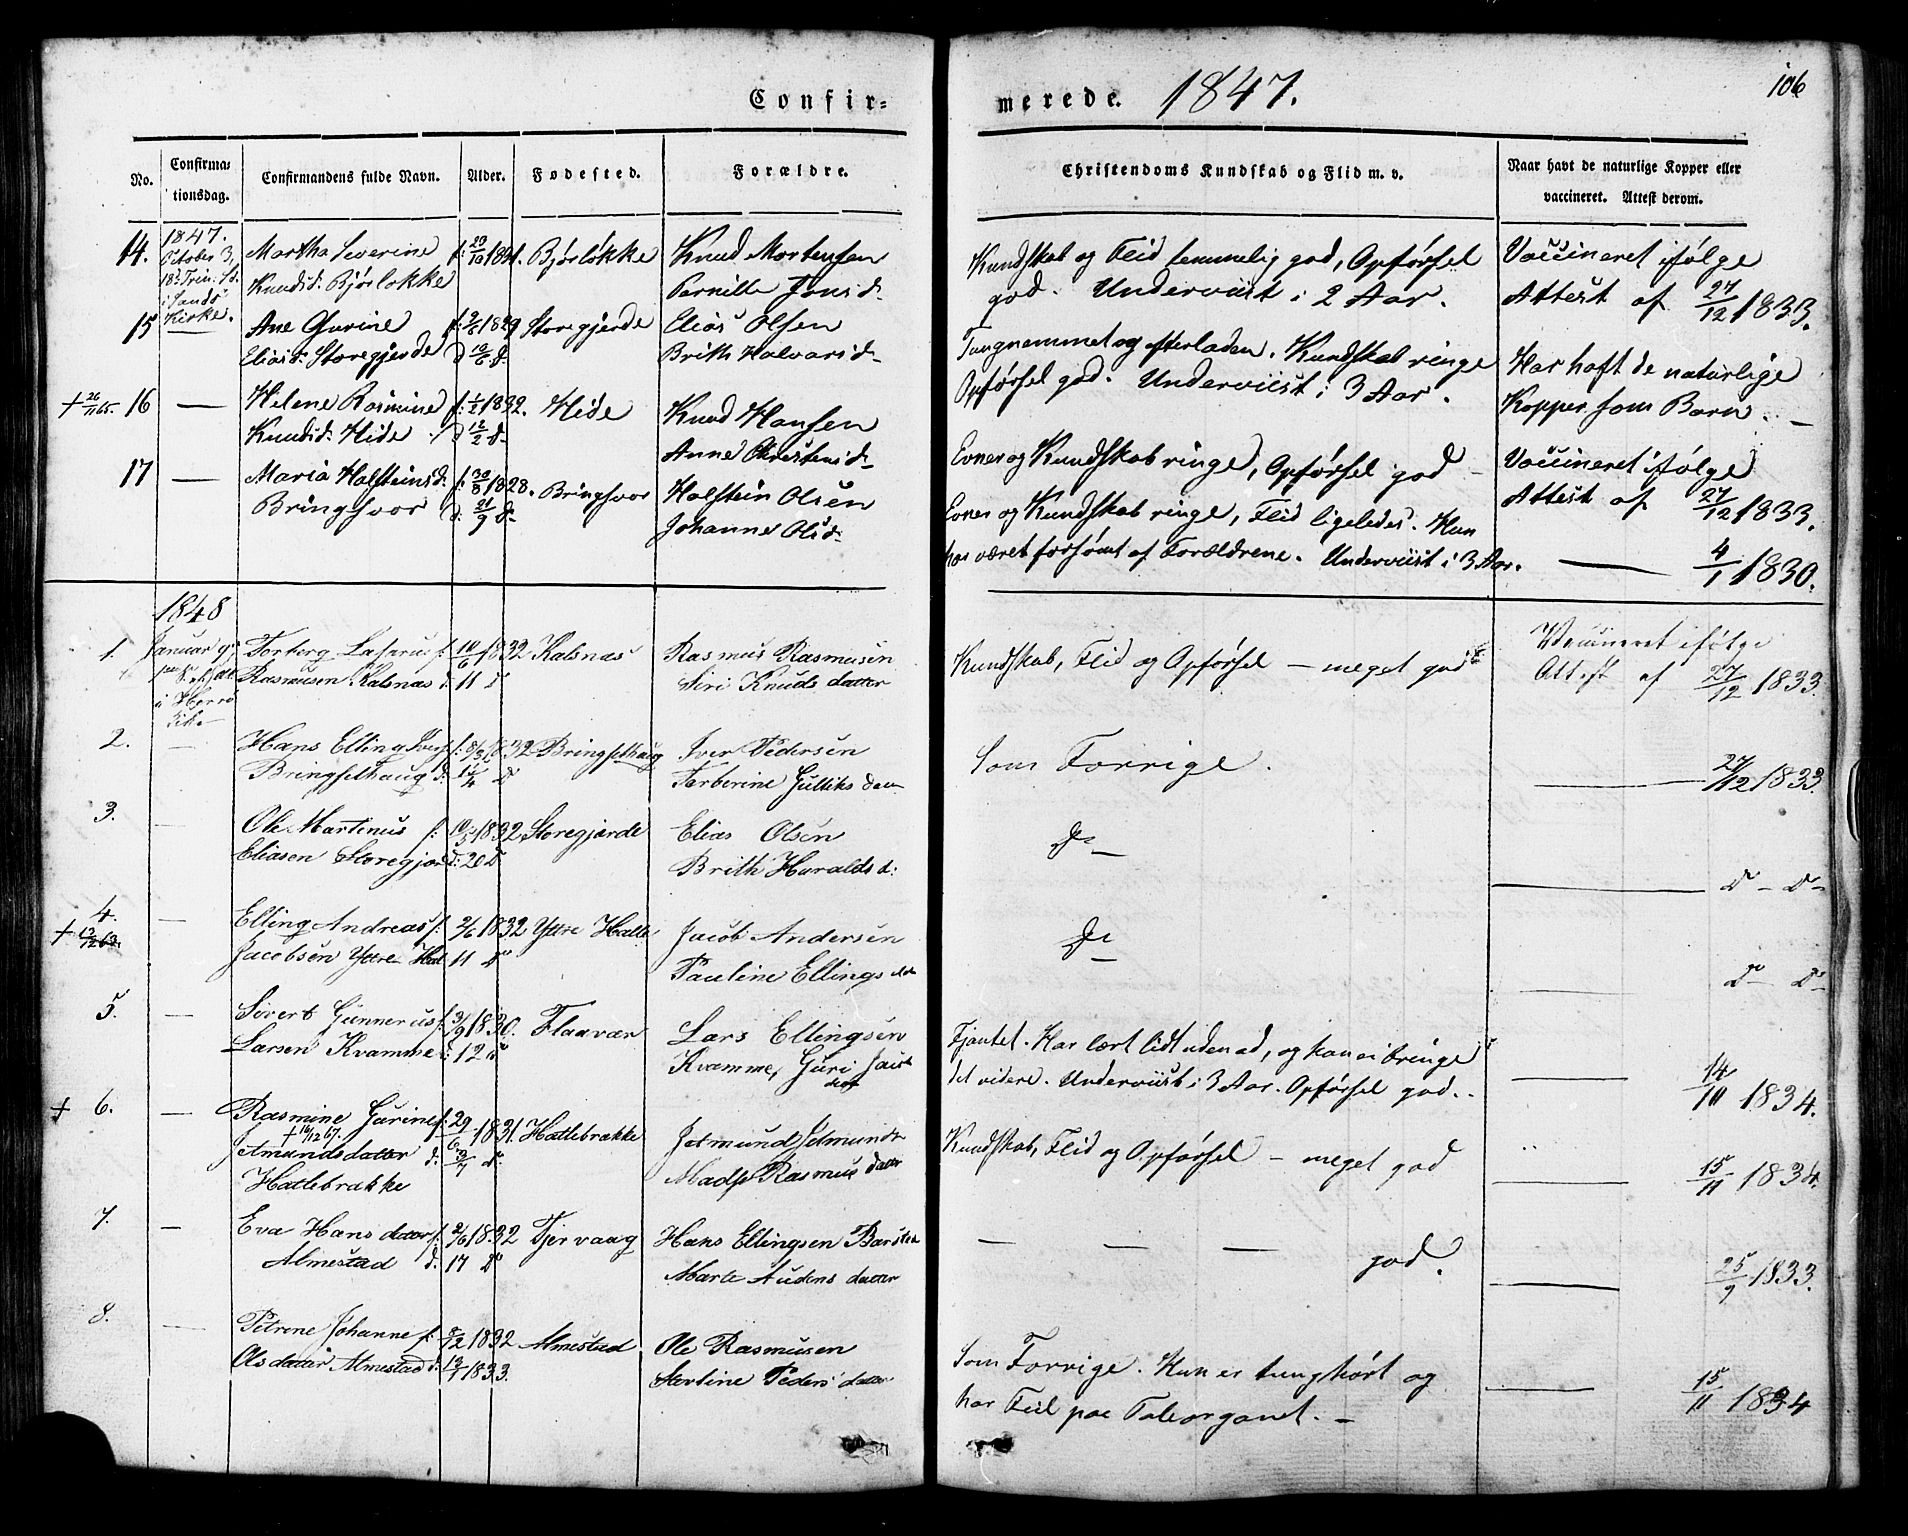 Confir=
merede. 1847.
106
No.
Confirma=
tionsdag.
Confirmandens fulde Navn.
Alder.
Fødested.
Forældre.
Christendoms Kundskab og Flid m. v.
Naar havt de naturlige Kopper eller
vaccineret. Attest derom.
1847.
October 3,
18de Trin. S.
i Sands
Kirke.
14. Martha Severine f: 1831. Bjørløkke Knud Mortensen
Knudsd: Bjørløkke Pernille Jonsd.
Kundskab og Flid temmelig god, Opførsel
god. Underviist i 2 Aar.
Vaccineret ifølge
Attest af 27/12 1833.
15 Ane Gurine 1829 Storegjerde Elias Olsen
Eliasd: Storegjerde Brith Halvarsd.
Tungnemmet og efterladen. Kundskab ringe
Opførsel god. Underviist i 3 Aar.
Har haft de naturlige
Kopper som Barn. —
† 26/11 65. 16 — Helene Rasmine f: 1/2 1832. Hide Knud Hansen
Knudsd: Hide d 12/2 d. Anne Christensd.
Evner og Kundskab ringe, Opførsel god —
Vaccineret ifølge
Attest af 27/12 1833.
17 — Maria Halsteinsd. f: 30/8 1828. Bringsvor Halstein Olsen
Bringsvor d. 21/9 d. Johanne Olsd.
Evner og Kundskab ringe, Flid ligeledes. Hun
har været forsømt af Forældrene. Underviist i 3 Aar.
— 4/1 1830.
1848
Januar 9.
i Herrø
Kirke
1. Torberg Lasarus f. 10/6 1832 Kalsnæs Rasmus Rasmusen
Rasmusen Kalsnæs d: 11 d Siri Knuds datter
Kundskab, Flid og Opførsel — meget god
Vaccineret ifølge
Attest af 27/12 1833.
2. — Hans Elling Ivers f: 8/3 1832 Bringselhaug Iver Pedersen
Bringselhaug d. 1/4 d Torberine Gulliks datt
Som Forrige.
— 27/12 1833.
3. — Ole Martinus f: 10/5 1832 Storegjærde Elias Olsen
Eliasen Storegjær d: 20 d Brith Haralds d:
do —
— do — do —
4. — Elling Andreas f. 2/6 1832 Yttre Hatle Jacob Andersen
† 13/12 63.
Jacobsen Yttre Hat 11 do Pauline Ellings dat
do —
— do — do —
5. — Sivert Gunnerus f. 3/9 1830. Flaavær Lars Ellingsen
Larsen Kvamme d: 12 do Kvamme, Guri
datt
Fjantet. Har lært lidt udenad, og kan ei bringe
det videre. Underviist i 3 Aar. Opførsel god..
— 14/11 1834.
† 6. — Rasmine Gurine f: 29/6 1831. Hatlebrække Jetmund Jetmunds
† 16/12 67.
Jetmundsdatter d. 3/7 d. Mads Rasmus datter
Hatlebrække
Kundskab, Flid og Opførsel — meget god
— 15/11 1834.
7. — Eva Hans datter f: 2/6 1832 Tjervaag Hans Ellingsen Barsten
Almestad d: 17 do Marte Audens datter
— — — god.
— 25/9 1833.
8. — Petrine Johanne f: 8/12 1832 Almestad Ole Rasmusen
Ols datter Almestad d: 13/1 1833. Sertine Peders datter
Som Forrige. Hun er tunghørt og
har Feil paa Taleorganet. —
— 15/11 1834